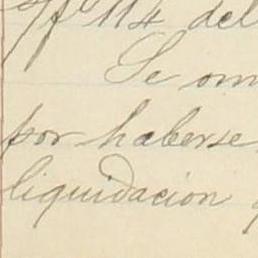 114 del
Se om
por haberse
liquidacion